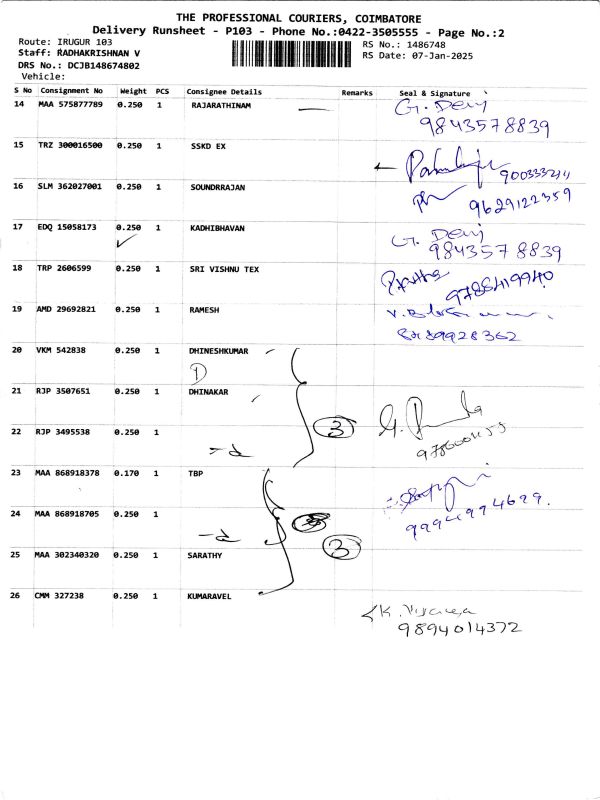 THE PROFESSIONAL COURIERS, COIMBATORE
Delivery Runsheet - P103 - Phone No.:0422-3505555 - Page No.:2
Route: IRUGUR 103
RS No.: 1486748
Staff: RADHAKRISHNAN V
RS Date: 07-Jan-2025
DRS No.: DCJB148674802
Vehicle:
S No Consignment No Weight PCS Consignee Details Remarks Seal & Signature
14 MAA 575877789 0.250 1 RAJARATHINAM G. Devi
9843578839
15 TRZ 300016500 0.250 1 SSKD EX
16 SLM 362027001 0.250 1 SOUNDRRAJAN
9629122359
17 EDQ 15058173 0.250 1 KADHIBHAVAN G. Devi
9843578839
18 TRP 2606599 0.250 1 SRI VISHNU TEX
9785419940
19 AMD 29692821 0.250 1 RAMESH
20 VKM 542838 0.250 1 DHINESHKUMAR
21 RJP 3507651 0.250 1 DHINAKAR
22 RJP 3495538 0.250 1 3
23 MAA 868918378 0.170 1 TBP
24 MAA 868918705 0.250 1
9994994629.
25 MAA 302340320 0.250 1 SARATHY 3
26 CMM 327238 0.250 1 KUMARAVEL
9894014372